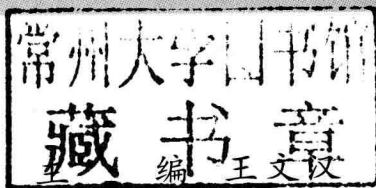 常州大学图书馆
藏书章
主 编 王文汉